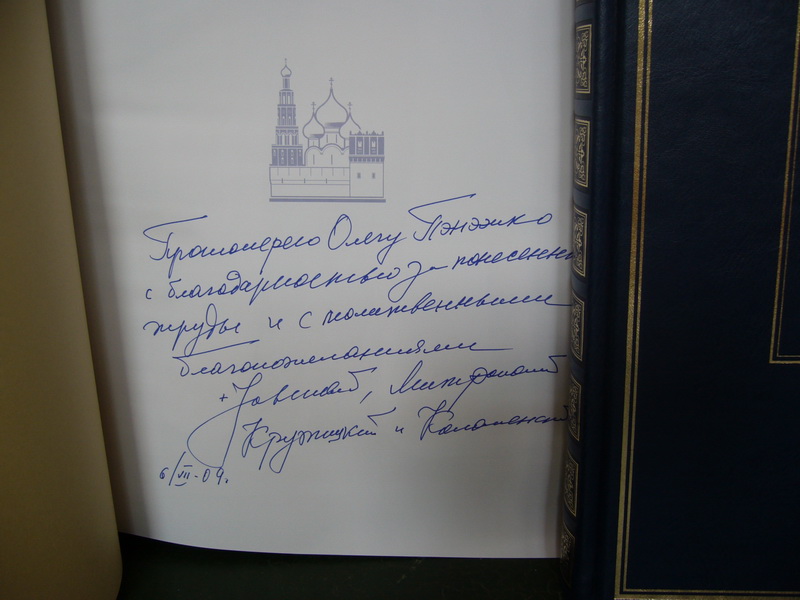 Протоиерею Олегу Пэнэжко
с благодарностью за понесенны
труды и с молитвенными
благопожеланиями
+ Ювеналий, Митрополит
Крутицкий и Коломенский
6/VII-09.